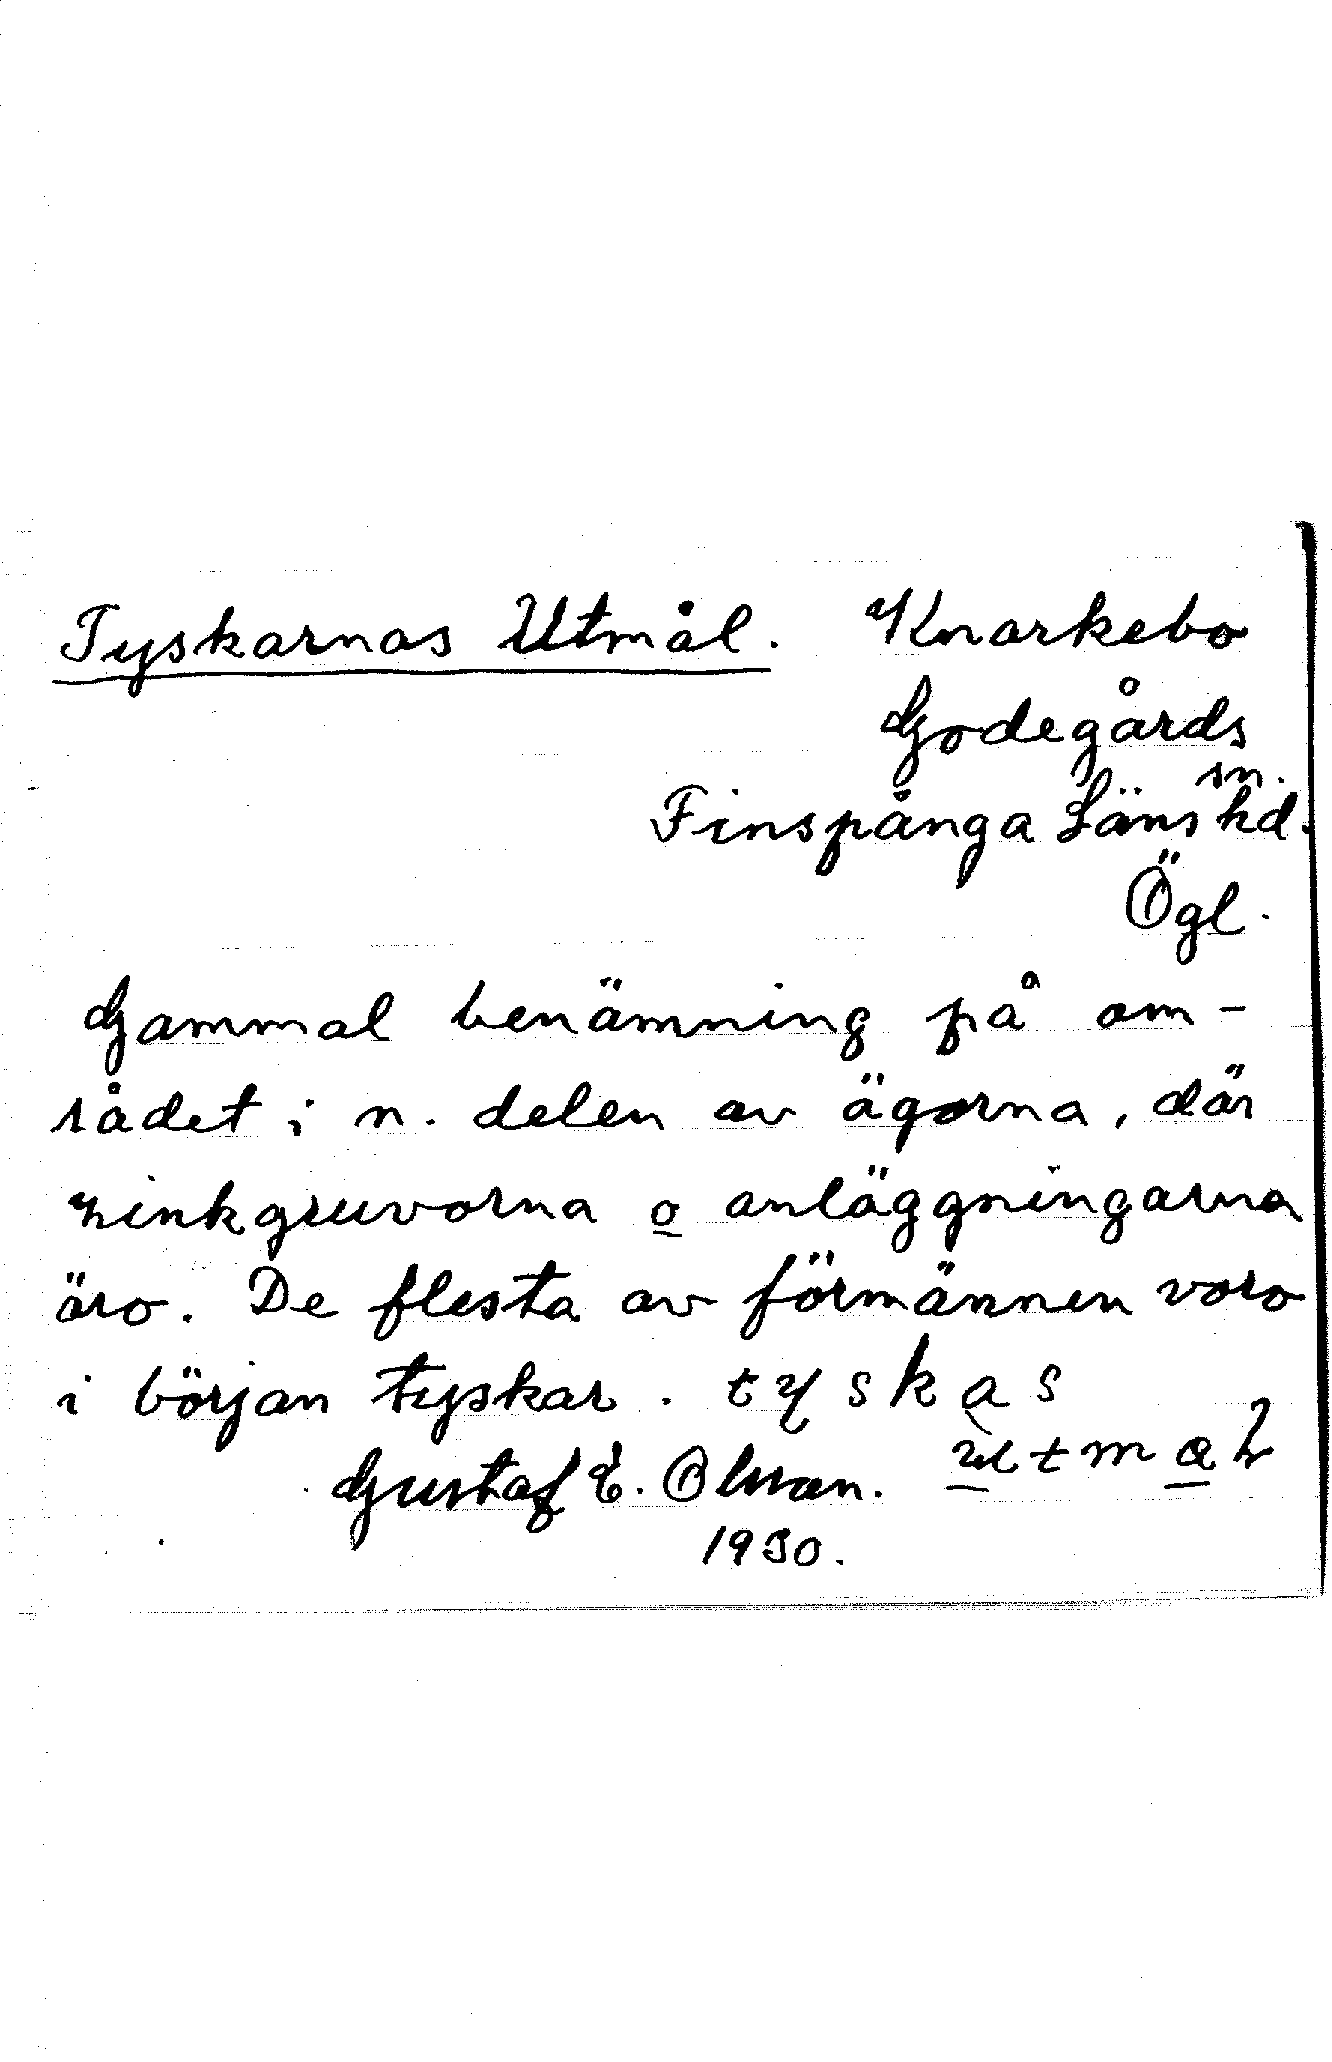 Tyskarnas Utmål. Knarkebo
Godegårds
sn.
Finspånga Läns hd.
Ögl.
Gammal benämning på om-
rådet i n. delen av ägorna, där
zinkgruvorna o anläggningarna
äro. De flesta av förmännen voro
i början tyskar. tyskas
utmaḷ
Gustaf E. Olsson.
1930.